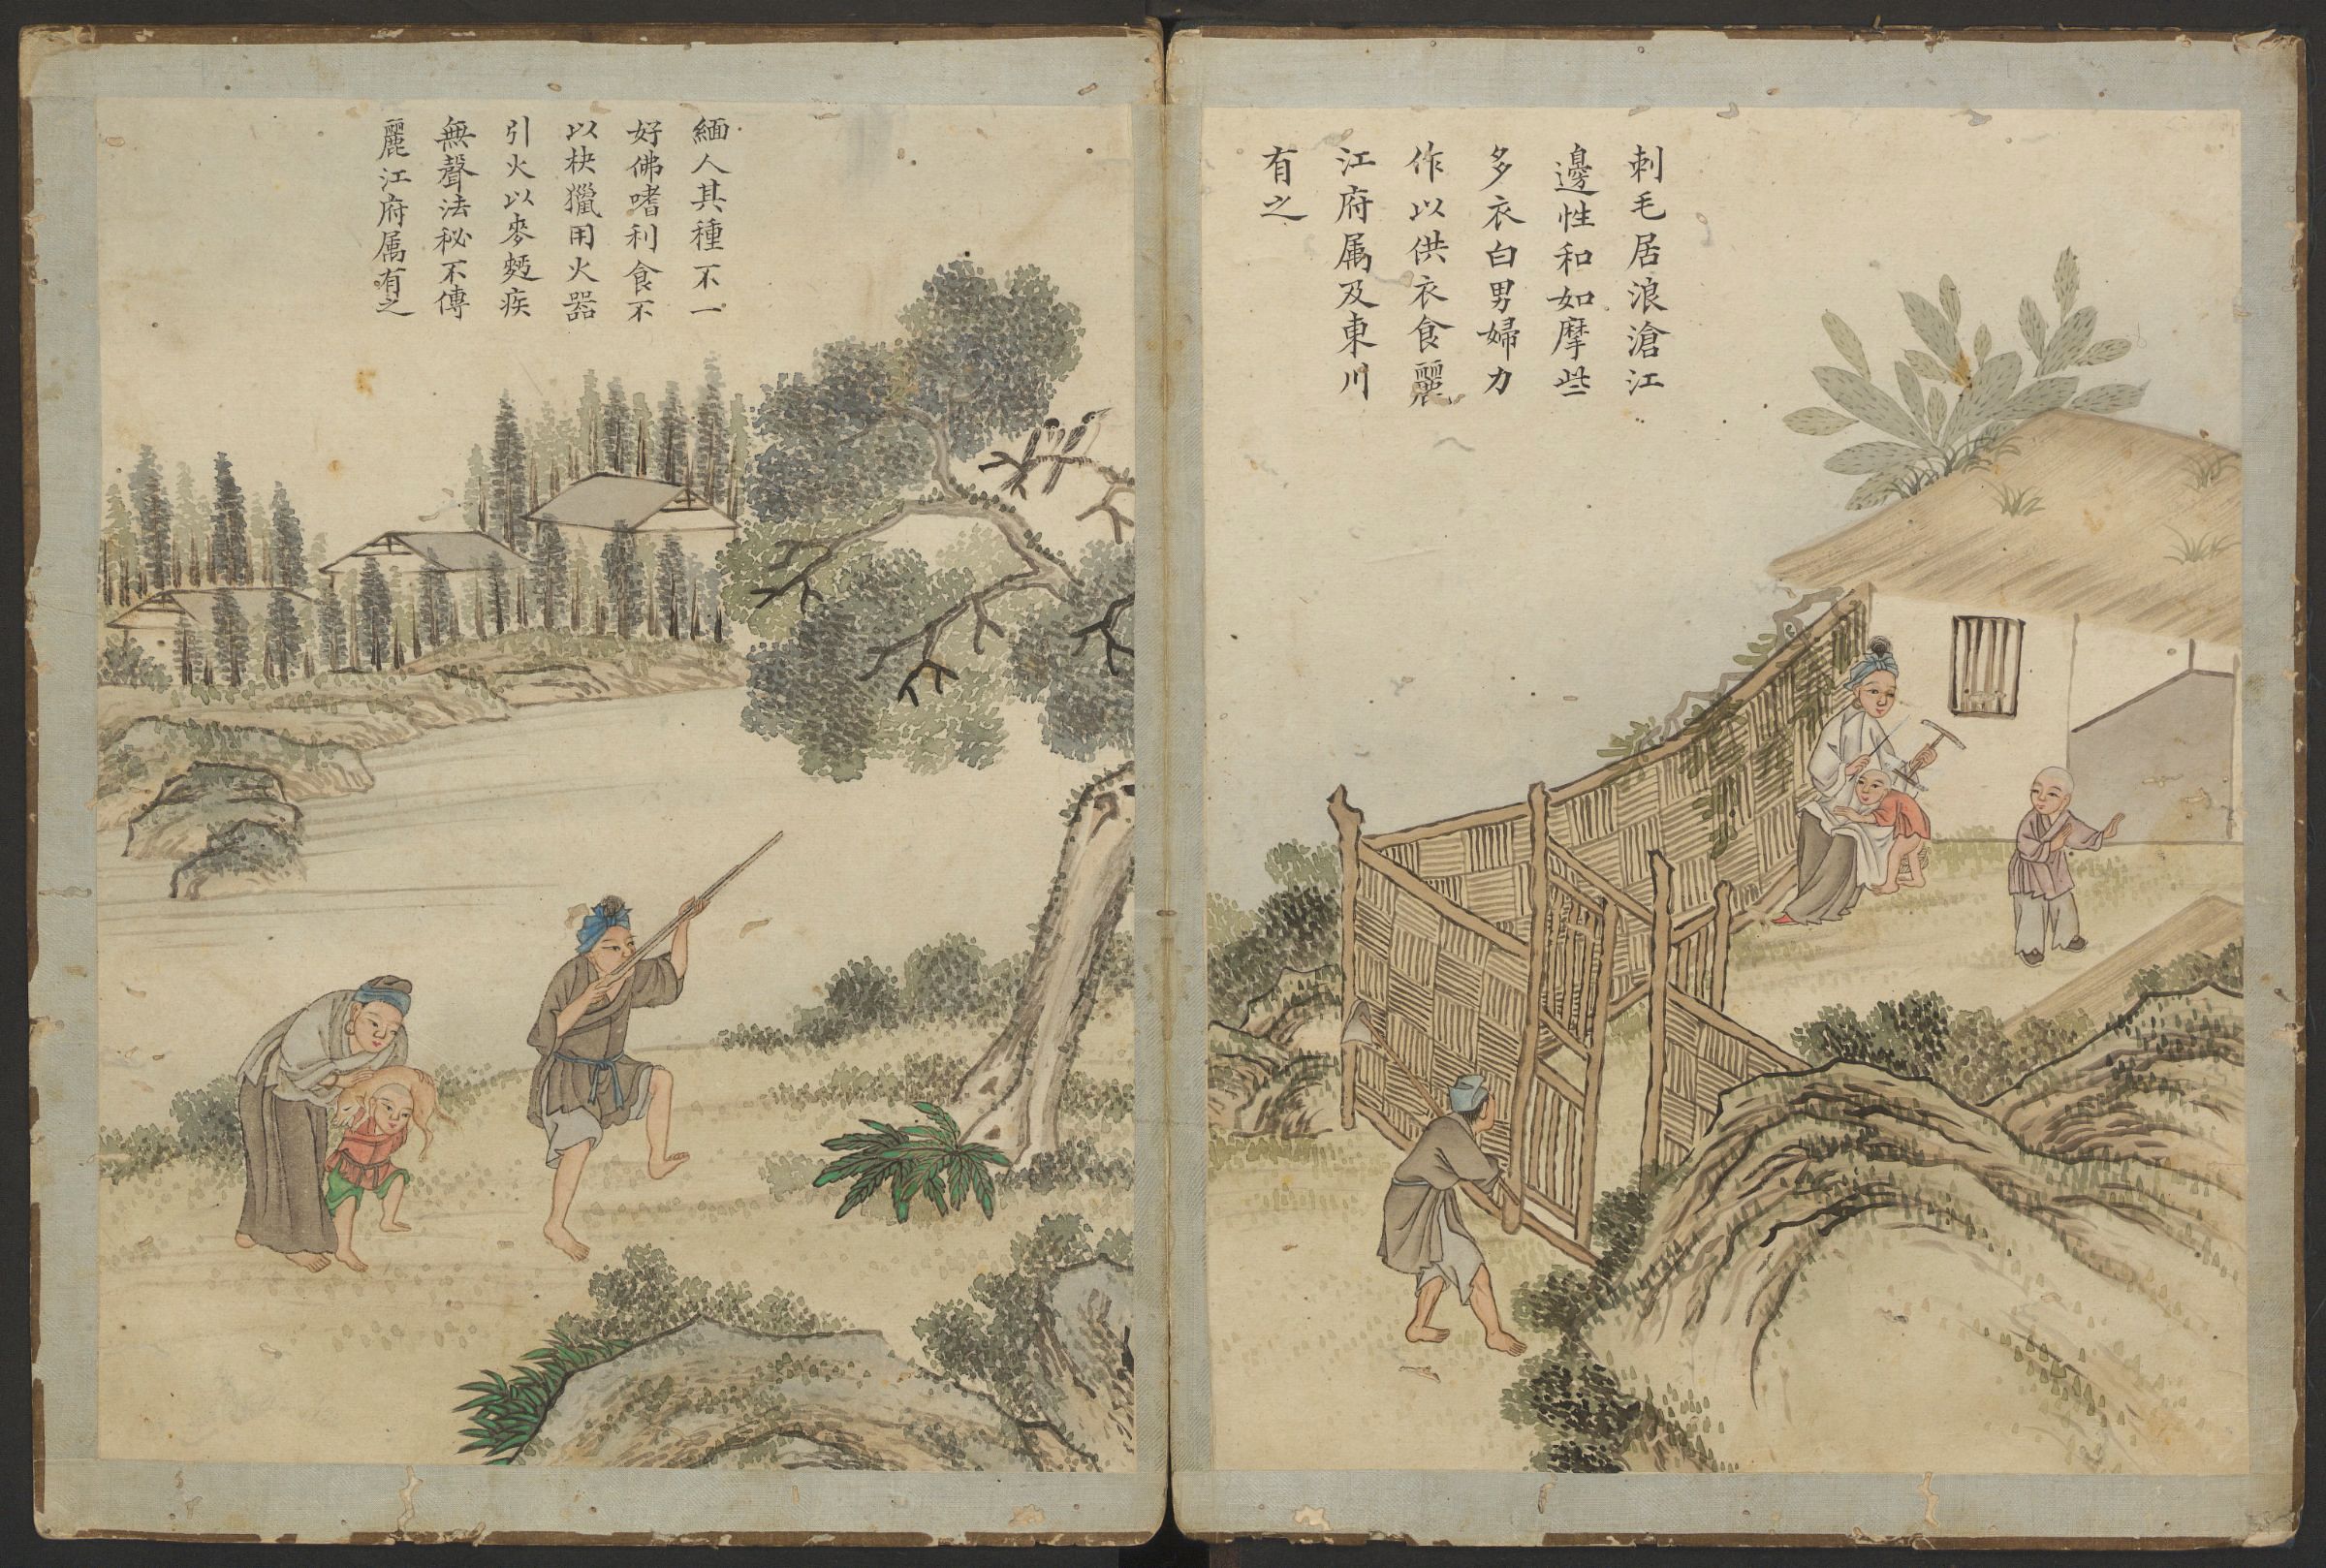 刺毛居浪滄江
邊性和如摩些
多衣白男婦力
作以供衣食麗
江府属及東川
有之
緬人其種不一
好佛嗜利食不
以柍獵用火器
引火以麥麪疾
無聲法秘不傳
麗江府属有之